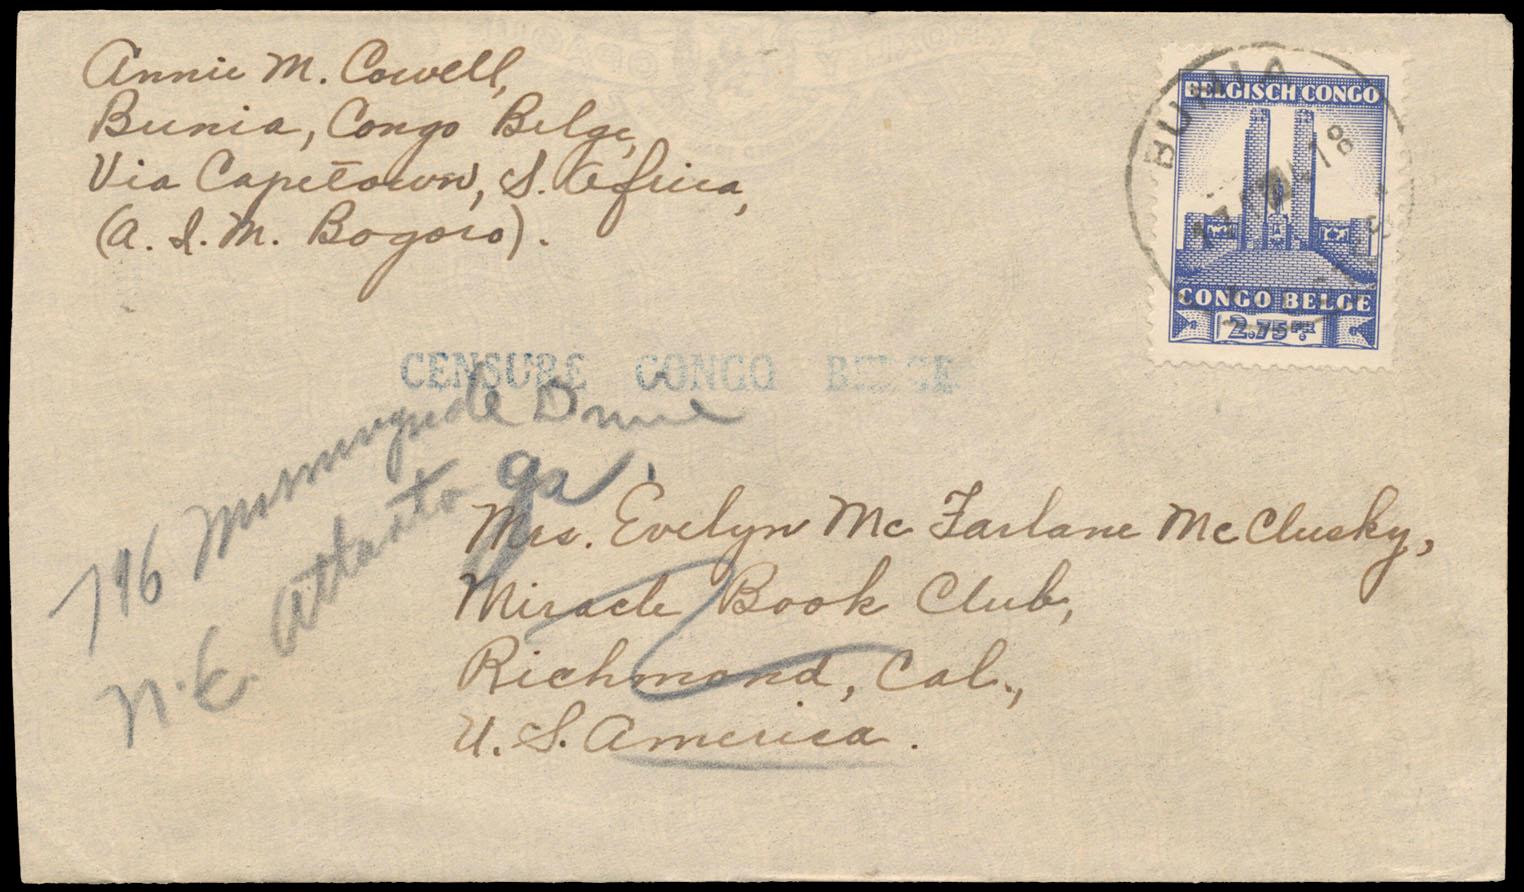 Annie M. Cowell,
Bunia, Congo Belge,
Via Capetown, S. Africa,
(A. I. M. Bogoro).
BUNIA
BELGISCH CONGO
CONGO BELGE
2.75 FR.
CENSURE CONGO BELGE
796 Morningside Drive
N.E. Atlanta Ga
Mrs. Evelyn Mc Farlane McClusky,
Miracle Book Club,
Richmond, Cal.,
U. S. America.